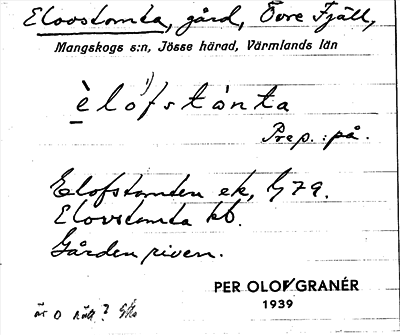 Elovstomta, gård, Övre Fjäll,
Mangskogs s:n, Jösse härad, Värmlands län
è̱lo¹⁾fstò̱mta
Prep. : på.
Elofstomten ek, G 79.
Elovstomta kb.
Gården riven.
PER OLOF GRANÉR
1939
är o rätt?